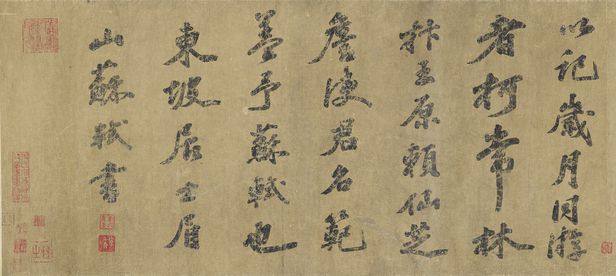 以記歲月同游
者柯常林
抃王原賴仙芝
詹使君名範
蓋予蘇軾也
東坡居士眉
山蘇軾書